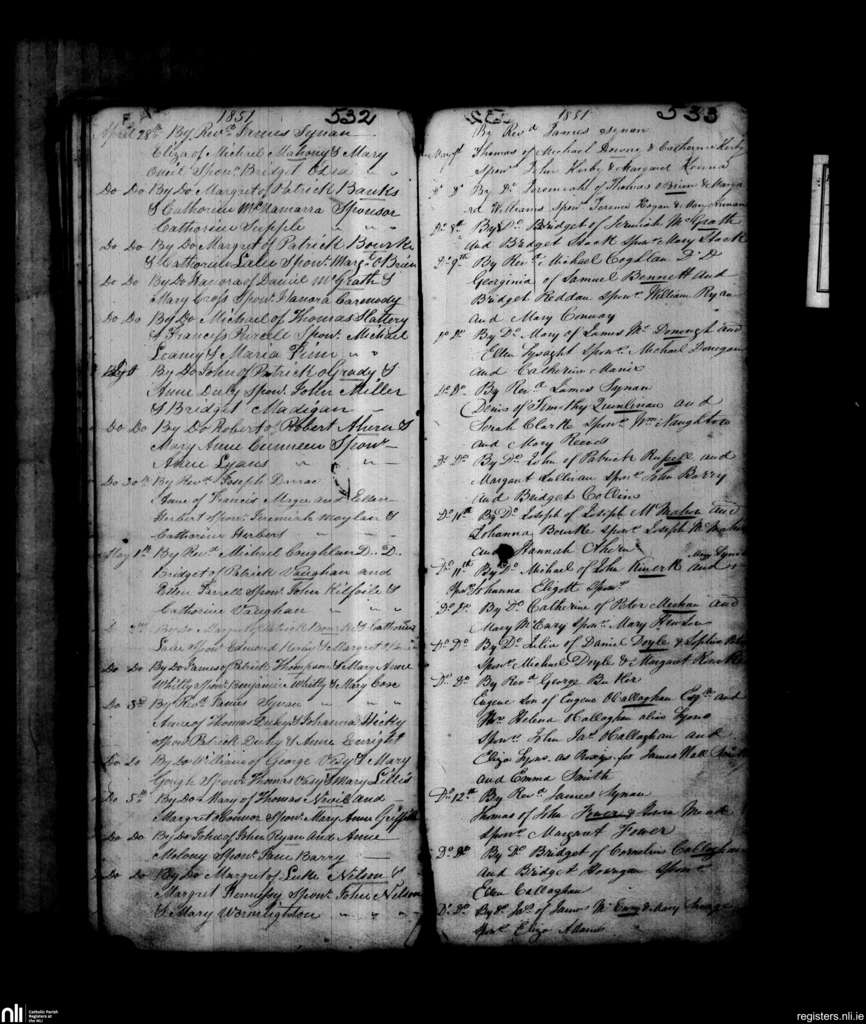 1851 532
April 28th By Revd. James Synan
Eliza of Michael Mahony & Mary
Oneil Sponr. Bridget
Do Do By Do Margret of Patrick Banks
& Catherine McNamarra Sponsor
Catherine Supple
Do Do By Do Margret of Patrick Bourke
& Catherine Lalee Sponr. Margt. O Brien
Do Do By Do Hanora of Daniel McGrath &
Mary Cross Sponr. Hanora Carmody
Do Do By Do Michael of Thomas Slattery
& Francess Purcell Sponr. Michael
Leamy & Maria Finn
By Do John of Patrick o Grady &
Anne Duly Sponr. John Miller
& Bridget Madigan
Do Do By Do Robert of Robert Ahern &
Mary Anne Cunneen Sponr
Anne Lyons
Do 30th By Revd. Joseph
Anne of Francis Magee and Ellen
Herbert Sponr. Jeremiah Moylan &
Catherine Herbert
May 1st By Revd. Michael Coughlan D. D.
Bridget of Patrick Vaughan and
Ellen Farrell Sponr. John Kilfoile &
Catherine Vaughan
By Do Margret of Patrick & Catherine
Lalee Sponr Edmond & Margret
Do Do By Do James of Patrick Thompson & Mary Anne
Whitty Sponr. Benjamin Whitty & Mary Coxe
Do 3rd By Revd. James Synan
Anne of Thomas Duly & Johanna Hickey
Sponr Patrick Duly & Anne Enright
Do Do By Do William of George Vasy & Mary
Gough Sponr. Thomas Vasy & Mary Lillis
Do 5th By Do Mary of Thomas Nevil and
Margret Connor Sponr. Mary Anne Griffith
Do Do By Do John of John Ryan and Anne
Molony Sponr. Jane Barry
Do Do By Do Margret of Luke Nelson &
Margret Hennessy Sponr. John Nelson
& Mary Wormlighton
1851 533
By Revd James Synan
Thomas of Michael Downey & Catherine Kirby
Sponr John Kirby & Margaret
By Do Jeremiah of Thomas O Brien & Marga
ret Williams Sponr Terence Hogan & Mary
Do 8th By Do Bridget of Jeremiah McGrath
and Bridget Stack Sponr Mary Stack
Do 9th By Revd. Michael Coghlan D. D
Georginia of Samuel Bennett and
Bridget Heddan Sponr. William Ryan
and Mary Conway
Do Do By Do. Mary of James Mc Donough and
Ellen Lysaght Sponr. Michael Donegan
and Catherine
Do Do By Revd James Synan
Denis of Timothy Quinlivan and
Sarah Clarke Sponr Wm. Naughton
and Mary
Do Do By Do. John of Patrick Russell and
Margaret Sullivan Sponr John Barry
and Bridget Collins
Do 10th By Do Joseph of Joseph Mc Mahon and
Johanna Bourke Sponr Joseph Mc Mahon
and Hannah Ahern
Do 11th By Do. Michael of John and Mary Lynch
Johanna Eligott Sponr
Do Do By Do Catherine of Peter Meehan and
Mary McEnry Sponr Mary
Do Do By Do Julia of Daniel Doyle & Sophia
Sponr Michael Doyle & Margaret
Do Do By Revd George Butler
Eugene Son of Eugene O Callaghan Esqr. and
Mrs Helena O Callaghan alias Lyons
Sponr. John Jas. O Callaghan and
Eliza Lyons as Proxys. for James Watt
and Emma Smith
Do 12th By Revd. James Synan
Thomas of John & Anne Meade
Sponr Margaret Power
Do Do By Do Bridget of Cornelius Callaghan
and Bridget Horrigan Sponr
Ellen Callaghan
Do Do By Do Jas. of James Mc & Mary
Sponr Eliza Adams
nli
Catholic Parish
Registers at
the NLI
registers.nli.ie